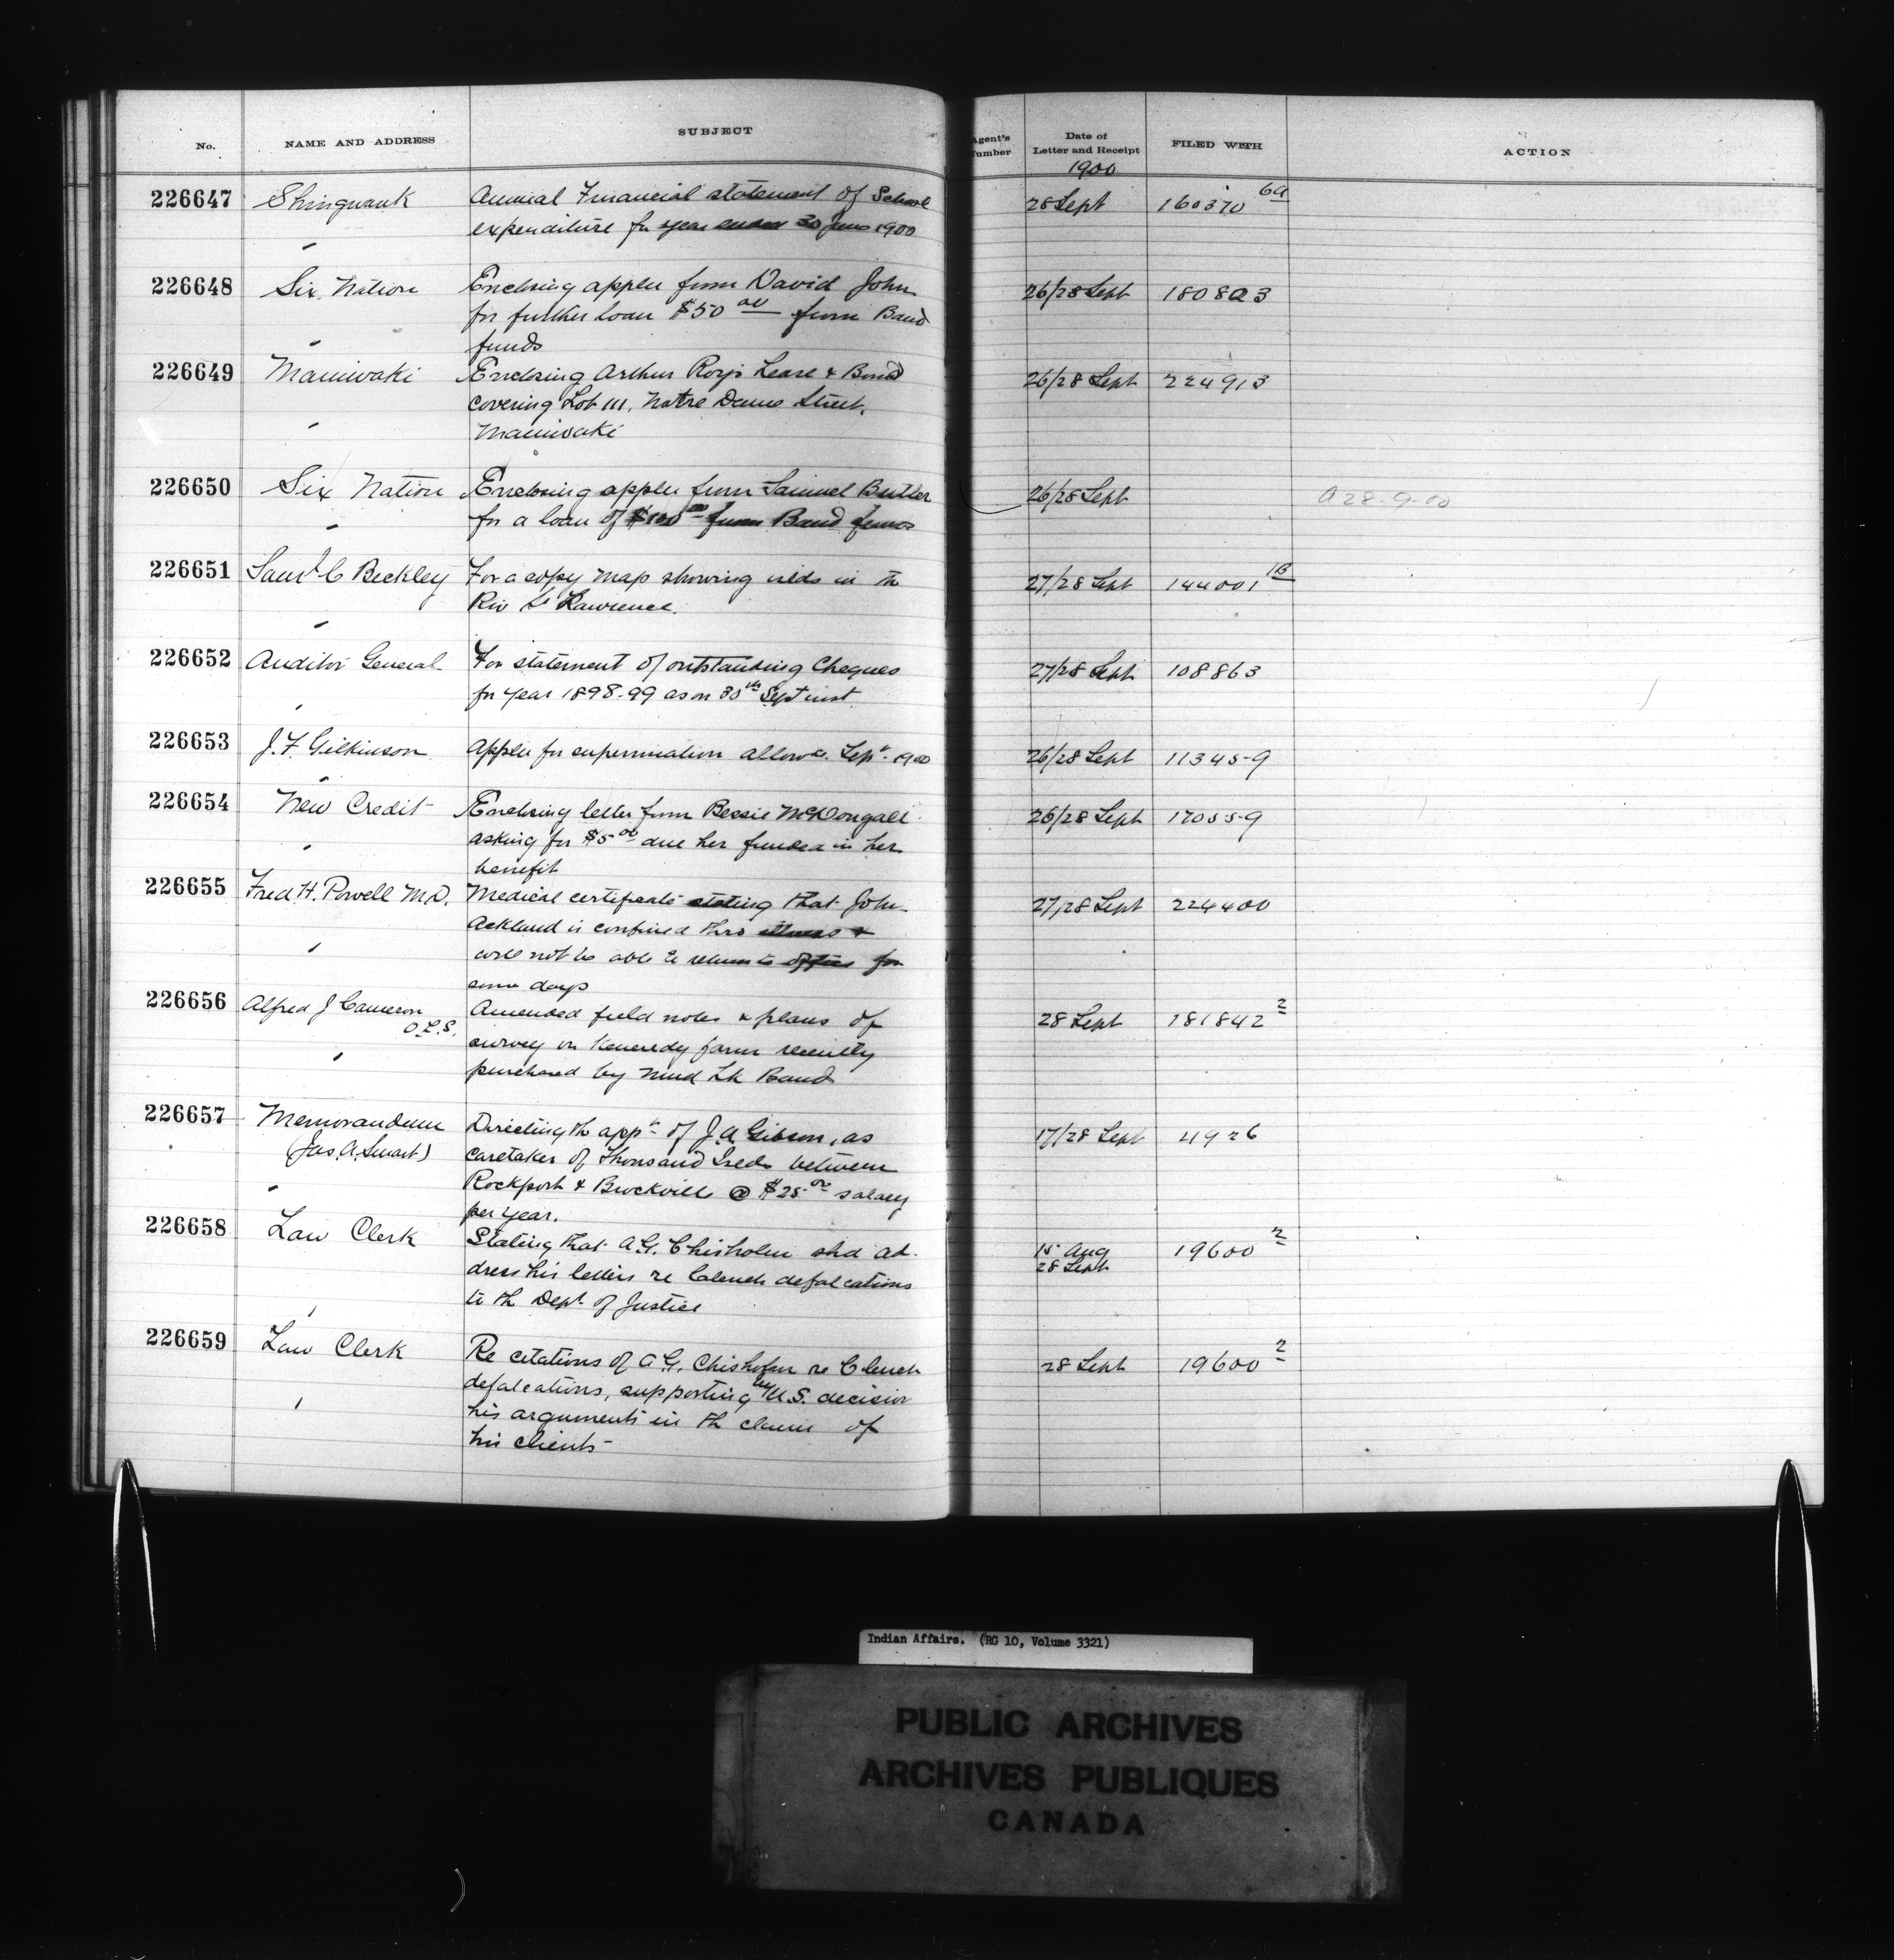 No. NAME AND ADDRESS SUBJECT Agent's Number Date of Letter and Receipt FILED WITH ACTION
1900
226647 Shingwauk Annual Financial statement of School 28 Sept 160370 6A
expenditure for year ended 30 June 1900
226648 Six Nation Enclosing applen from David John 26/28 Sept 180803
for further loan $50 00 from Band
funds
226649 Maniwaki Enclosing Arthur Roy's Lease & Bond 26/28 Sept 224913
covering Lot 111, Notre Dame Street,
Maniwaki
226650 Six Nation Enclosing applen from Samuel Butler 26/28 Sept A 28-9-00
for a loan of $100 00 from Band funds
226651 Saml C Beckley For a copy map showing islds in th 27/28 Sept 144001 1B
Riv St Lawrence.
226652 Auditor General For statement of outstanding Cheques 27/28 Sept 108863
for year 1898-99 as on 30th Sept inst.
226653 J. F. Gilkinson Applen for superannuation allowce. Sepr. 1900 26/28 Sept 113459
226654 New Credit Enclosing letter from Bessie McDougall 26/28 Sept 170559
asking for $5 00 due her funded in her
benefit
226655 Fred H. Powell M.D. Medical certificate stating that John 27/28 Sept 224400
Ackland is confined thro illness &
will not be able to return to office for
some days
226656 Alfred J Cameron Amended field notes & plans of 28 Sept 181842 2
O.L.S. survey on Kennedy farm recently
purchased by Mud Lk Band
226657 Memorandum Directing th appt of J. A. Gibson, as 17/28 Sept 4926
(Jas. A. Smart) caretaker of Thousand Iseds between
Rockport & Brockville @ $25 00 salary
per year.
226658 Law Clerk Stating that A. G. Chisholm shd ad- 15 Aug 19600 2
dress his letters re Clench defalcations 28 Sept
to th Dept of Justice
226659 Law Clerk Re citations of A. G. Chisholm re Clench 28 Sept 19600 2
defalcations, supporting by U.S. decision
his arguments in th claim of
his clients-
Indian Affairs. (RG 10, Volume 3321)
PUBLIC ARCHIVES
ARCHIVES PUBLIQUES
CANADA